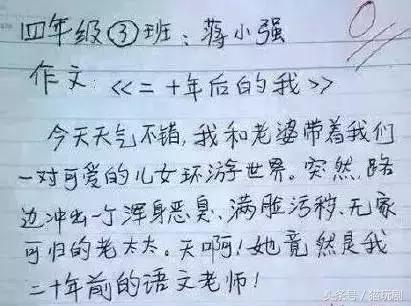 四年级③班:蒋小强
作文:<<二十年后的我>>
今天天气不错,我和老婆带着我们
一对可爱的儿女环游世界。突然,路
边冲出一个浑身恶臭、满脸污秽、无家
可归的老太太。天啊!她竟然是我
二十年前的语文老师!
头条号/猫玩剧